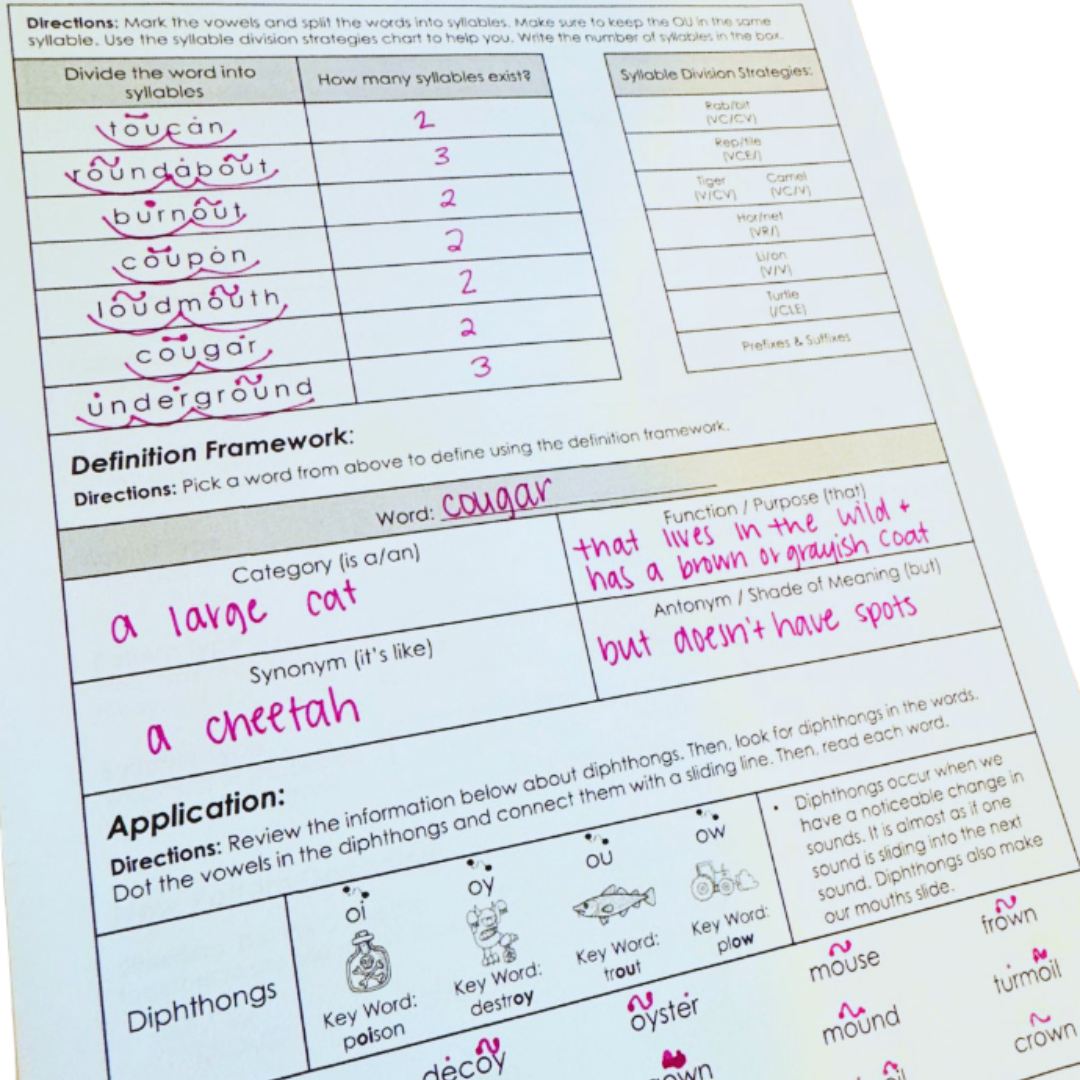 Directions: Mark the vowels and split the words into syllables. Make sure to keep the OU in the same
syllable. Use the syllable division strategies chart to help you. Write the number of syllables in the box.
Divide the word into
syllables
How many syllables exist?
toucan 2
roundabout 3
burnout 2
coupon 2
loudmouth 2
cougar 2
underground 3
Syllable Division Strategies:
Rab/bit
(VC/CV)
Rep/tile
(VCE/)
Tiger Camel
(V/CV) (VC/V)
Hor/net
(VR/)
Li/on
(V/V)
Turtle
(/CLE)
Prefixes & Suffixes
Definition Framework:
Directions: Pick a word from above to define using the definition framework.
Word: cougar
Category (is a/an)
a large cat
Function / Purpose (that)
that lives in the wild +
has a brown or grayish coat
Synonym (it's like)
a cheetah
Antonym / Shade of Meaning (but)
but doesn't have spots
Application:
Directions: Review the information below about diphthongs. Then, look for diphthongs in the words.
Dot the vowels in the diphthongs and connect them with a sliding line. Then, read each word.
Diphthongs
oi
Key Word:
poison
oy
Key Word:
destroy
ou
Key Word:
trout
ow
Key Word:
plow
• Diphthongs occur when we
have a noticeable change in
sounds. It is almost as if one
sound is sliding into the next
sound. Diphthongs also make
our mouths slide.
decoy oyster mouse frown
mound turmoil
crown